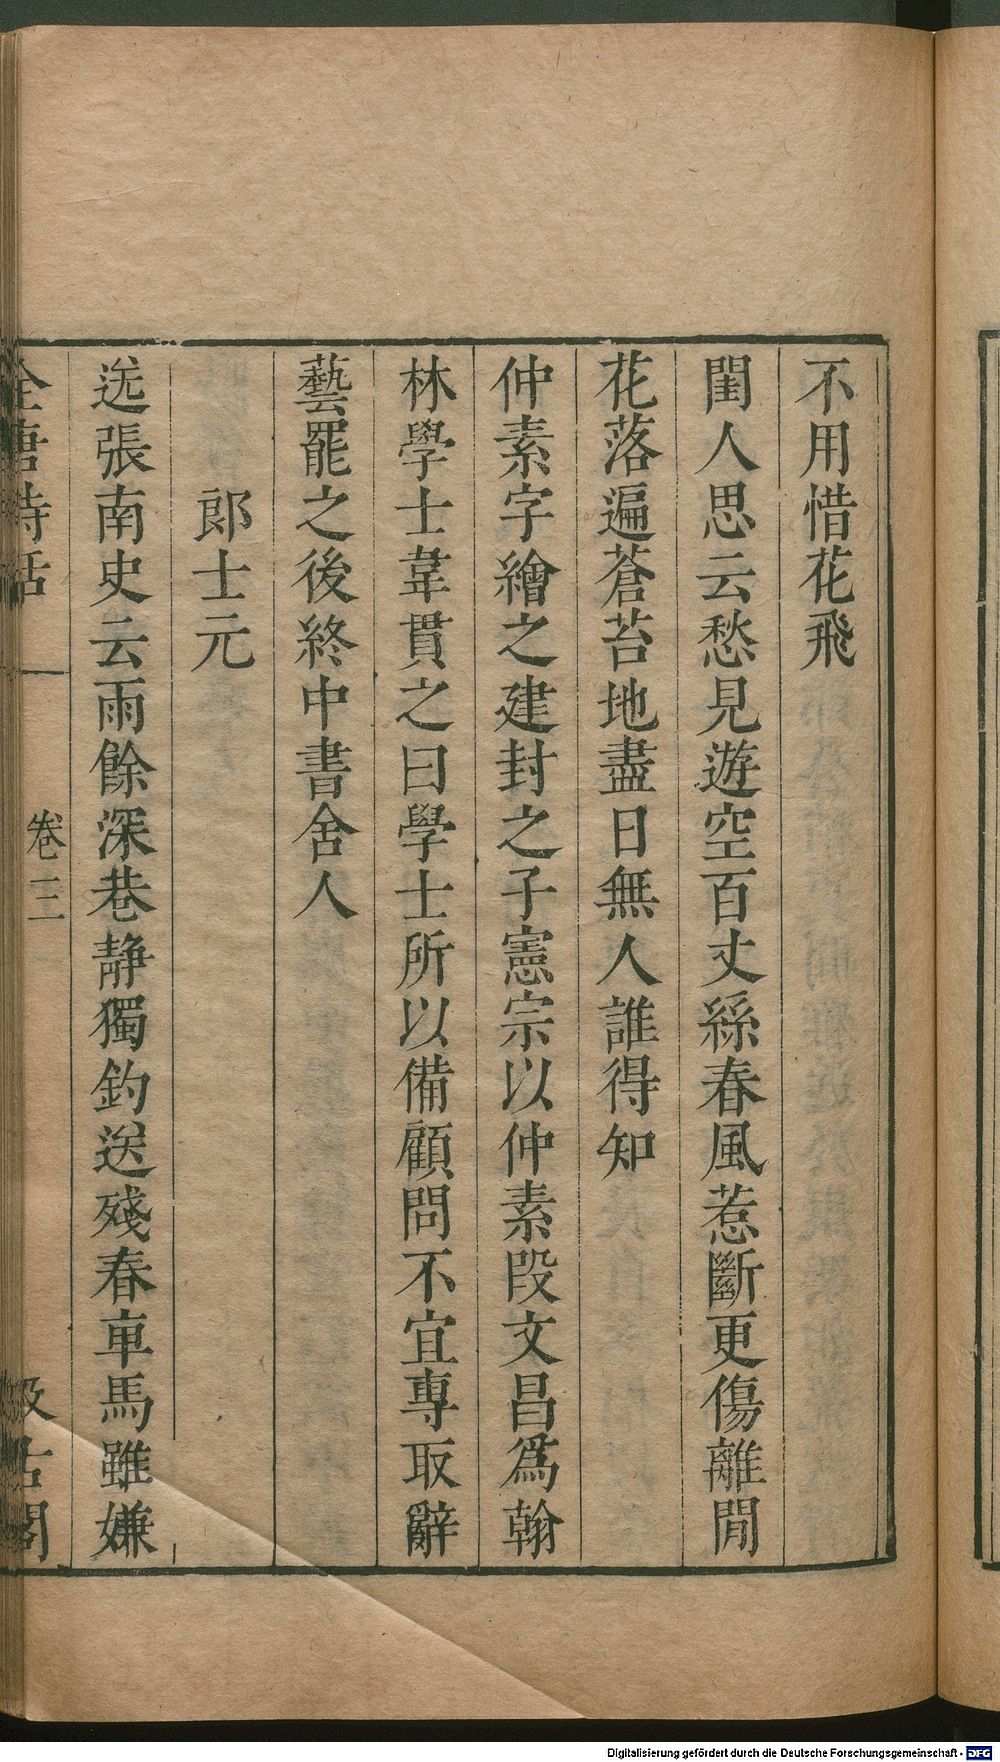 不用惜花飛
閨人思云愁見遊空百丈絲春風惹斷更傷離閒
花落遍蒼苔地盡日無人誰得知
仲素字繪之建封之子憲宗以仲素段文昌爲翰
林學士韋貫之曰學士所以備顧問不宜專取辭
藝罷之後終中書舍人
郎士元
送張南史云雨餘深巷靜獨釣送殘春車馬雖嫌
全唐詩話 卷三 汲古閣
Digitalisierung gefördert durch die Deutsche Forschungsgemeinschaft - DFG